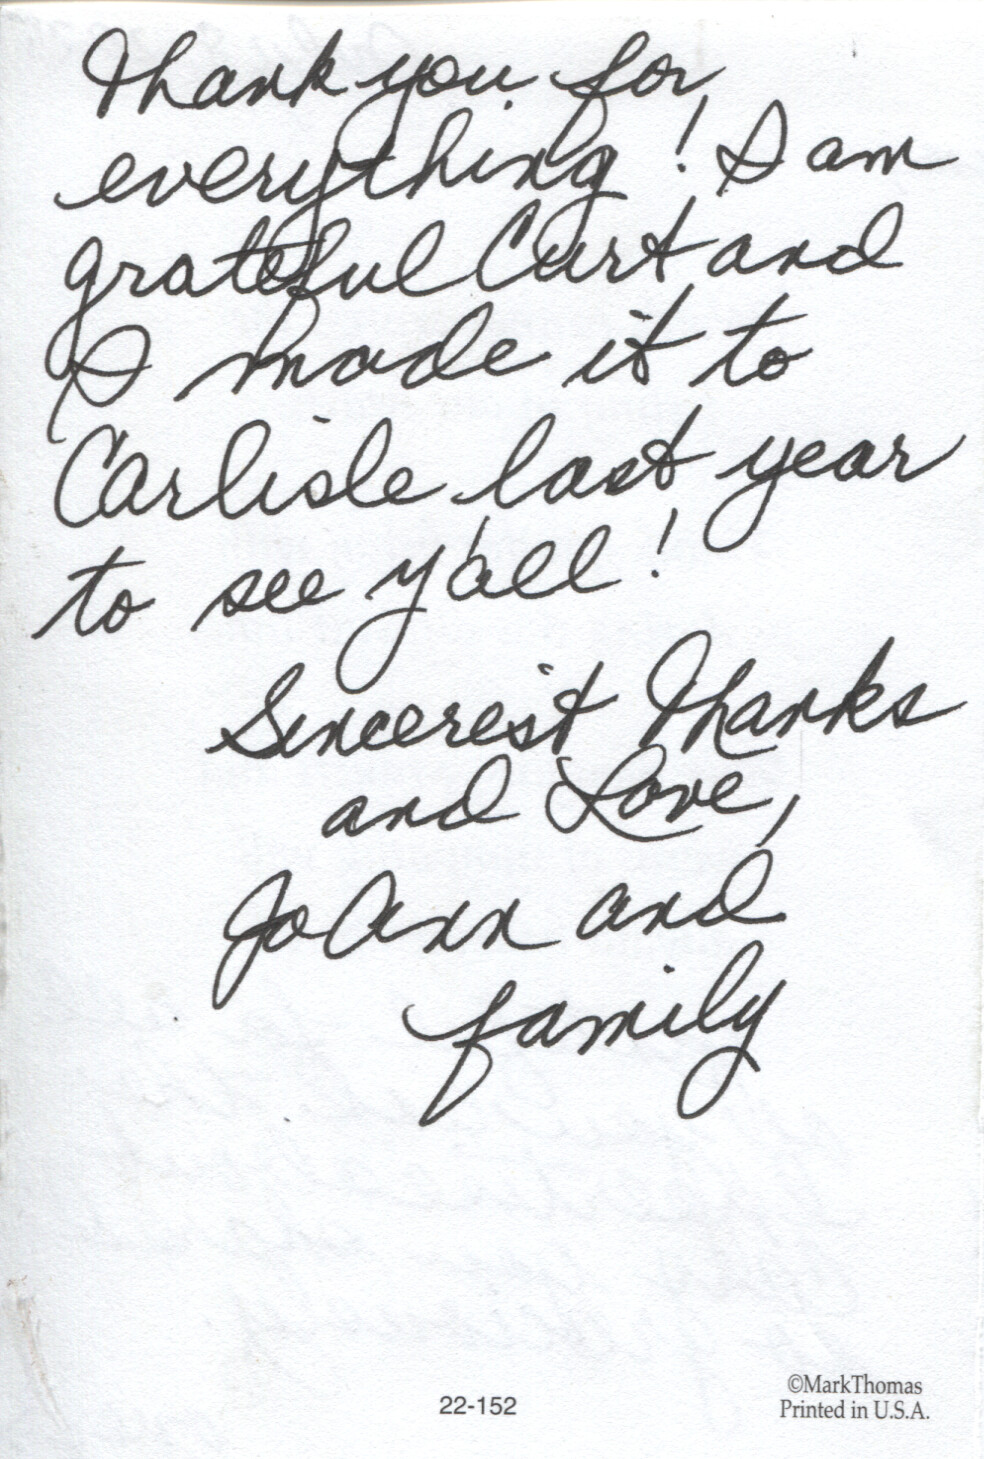 Thank you for
everything! I am
grateful Curt and
I made it to
Carlisle last year
to see y'all!
Sincerest Thanks
and Love,
JoAnn and
family
22-152
©MarkThomas
Printed in U.S.A.